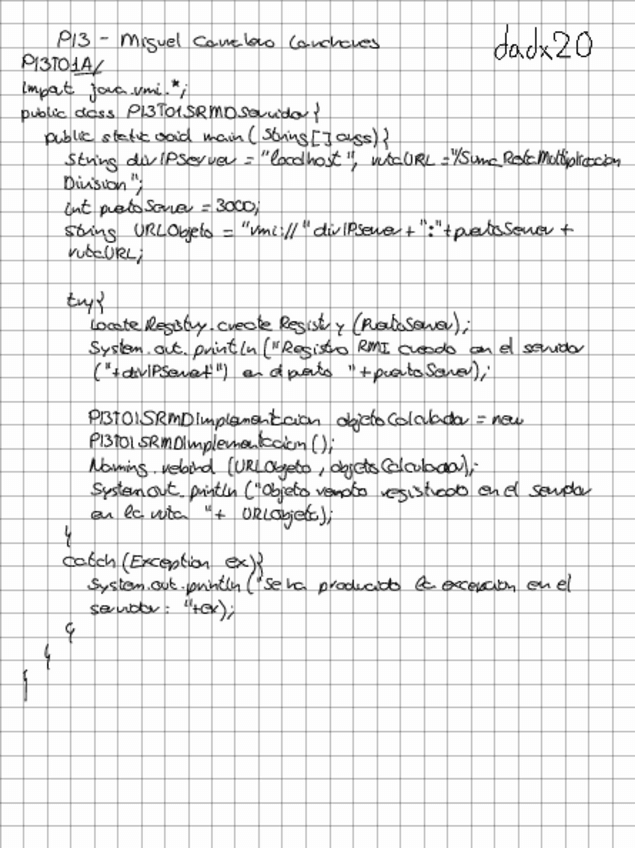 P13 - Miguel
dadx20
P13T01A/
import java.rmi.*;
public class P13T01SRMDServidor{
public static void main( String[] args){
String dirIPServer = "localhost", rutaURL ="/SumaRestaMultiplicacion
Division";
int puertoServer = 3000;
String URLObjeto = "rmi://" dirIPServer + ":"+puertoServer +
rutaURL;
try{
LocateRegistry.createRegistry (PuertoServer);
System.out.println ("Registro RMI creado en el servidor
("+dirIPServer+") en el puerto "+puertoServer);
P13T01SRMDImplementacion objetoCalculadora = new
P13T01SRMDImplementacion();
Naming.rebind (URLObjeto, objetoCalculadora);
System.out.println ("Objeto remoto registrado en el servidor
en la ruta "+ URLObjeto);
}
catch (Exception ex){
System.out.println ("Se ha producido la excepcion en el
servidor: "+ex);
}
}
}